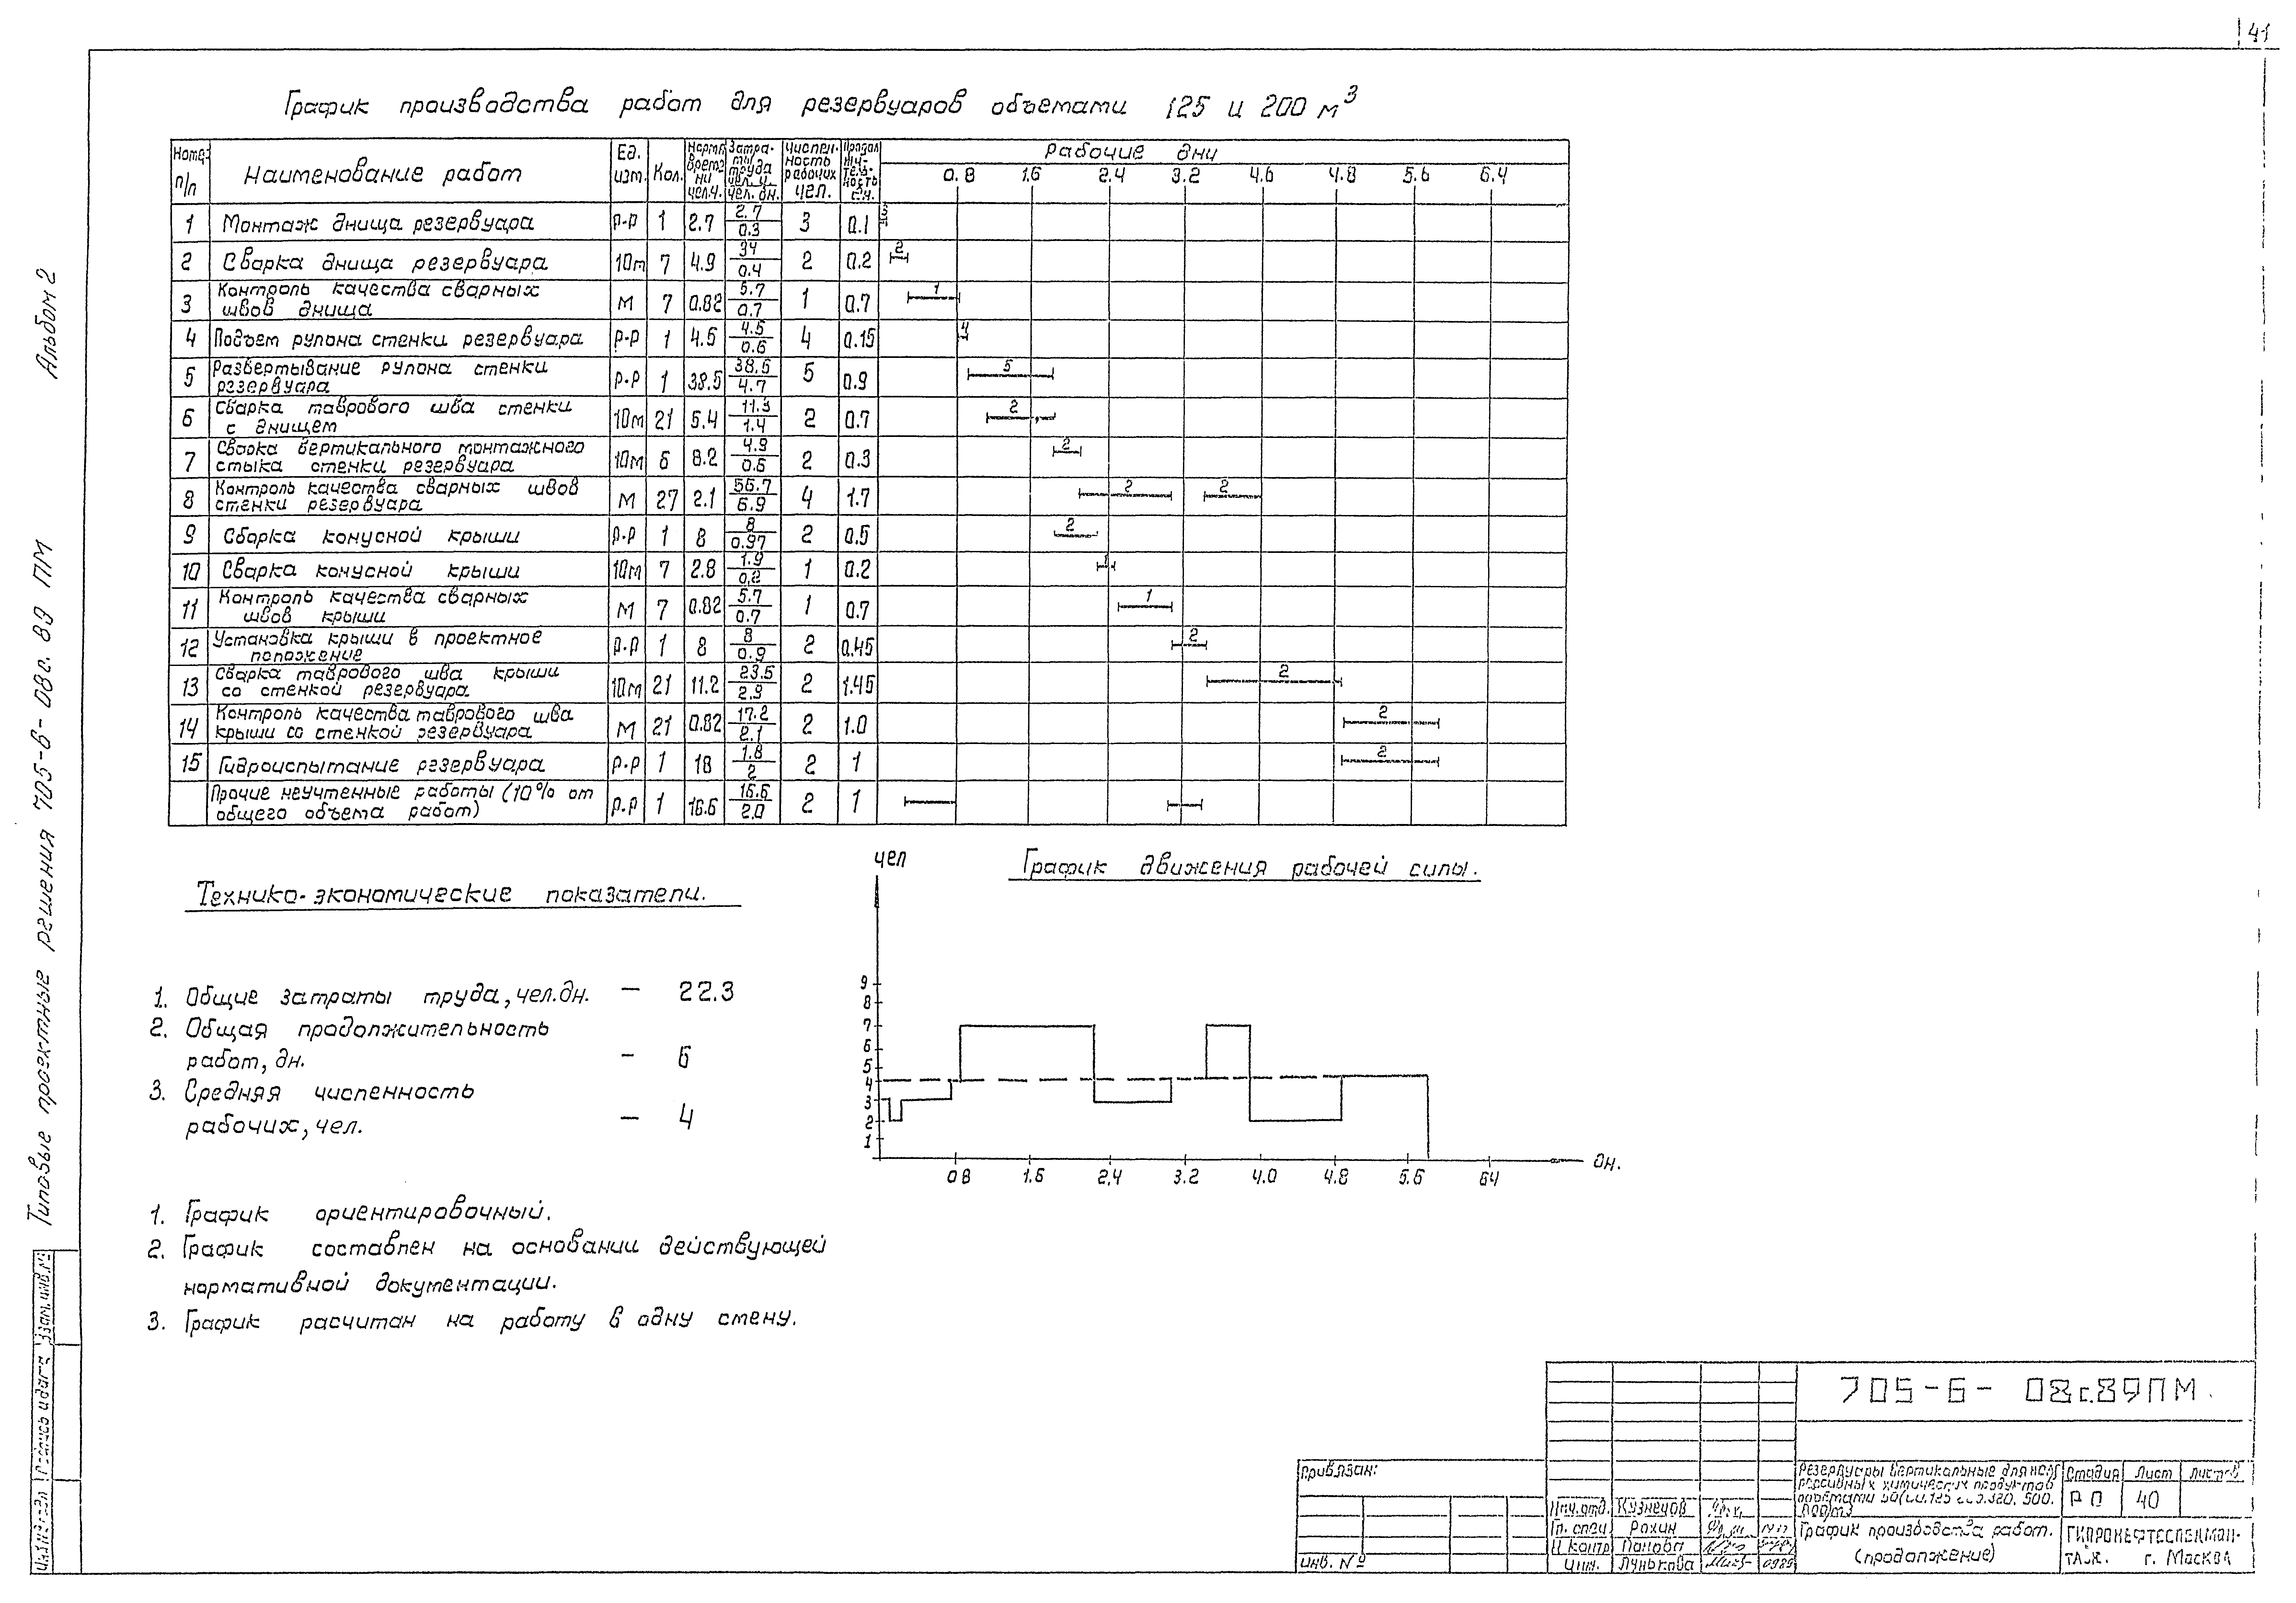 41
График производства работ для резервуаров объемами 125 и 200 м³
п/п
Наименование работ
Ед. изм.
Кол.
Норма времени чел.ч.
Затраты труда чел. ч. чел. дн.
Численность рабочих чел.
Рабочие дни
0.8 1.6 2.4 3.2 4.6 4.8 5.6 6.4
1 Монтаж днища резервуара р-р 1 2.7 2.7 0.3 3 0.1 3
2 Сварка днища резервуара 10м 7 4.9 34 0.4 2 0.2 2
3 Контроль качества сварных швов днища м 7 0.82 5.7 0.7 1 0.7 1
4 Подъем рулона стенки резервуара р-р 1 4.5 4.5 0.6 4 0.15 4
5 Развертывание рулона стенки резервуара р-р 1 38.5 38.5 4.7 5 0.9 5
6 Сварка таврового шва стенки с днищем 10м 21 5.4 11.3 1.4 2 0.7 2
7 Сварка вертикального монтажного стыка стенки резервуара 10м 6 8.2 4.9 0.6 2 0.3 2
8 Контроль качества сварных швов стенки резервуара м 27 2.1 56.7 6.9 4 1.7 2 2
9 Сборка конусной крыши р-р 1 8 8 0.97 2 0.5 2
10 Сварка конусной крыши 10м 7 2.8 1.9 0.2 1 0.2 1
11 Контроль качества сварных швов крыши м 7 0.82 5.7 0.7 1 0.7 1
12 Установка крыши в проектное положение р-р 1 8 8 0.9 2 0.45 2
13 Сварка таврового шва крыши со стенкой резервуара 10м 21 11.2 23.5 2.9 2 1.45 2
14 Контроль качества таврового шва крыши со стенкой резервуара м 21 0.82 17.2 2.1 2 1.0 2
15 Гидроиспытание резервуара р-р 1 18 1.8 2 2 1 2
Прочие неучтенные работы (10% от общего объема работ) р-р 1 16.6 16.6 2.0 2 1
Технико-экономические показатели.
1. Общие затраты труда, чел.дн. – 22.3
2. Общая продолжительность
работ, дн. – 6
3. Средняя численность
рабочих, чел. – 4
1. График ориентировочный.
2. График составлен на основании действующей
нормативной документации.
3. График расчитан на работу в одну смену.
График движения рабочей силы.
чел
9
8
7
6
5
4
3
2
1
08 1.6 2.4 3.2 4.0 4.8 5.6 64
дн.
Альбом 2
Типовые проектные решения 705-6-08с.89 ПМ
Взам.инв.№
Подпись и дата
Привязан:
инв. №
705-6-08с.89ПМ.
Нач.отд. Кузнецов
Гл. спец. Рохин
Н контр Панова
Инж. Лунькова
Резервуары вертикальные для
химических продуктов
Стадия Лист Листов
РП 40
График производства работ.
(продолжение)
ГИПРОНЕФТЕСПЕЦМОН-
ТАЖ. г. Москва